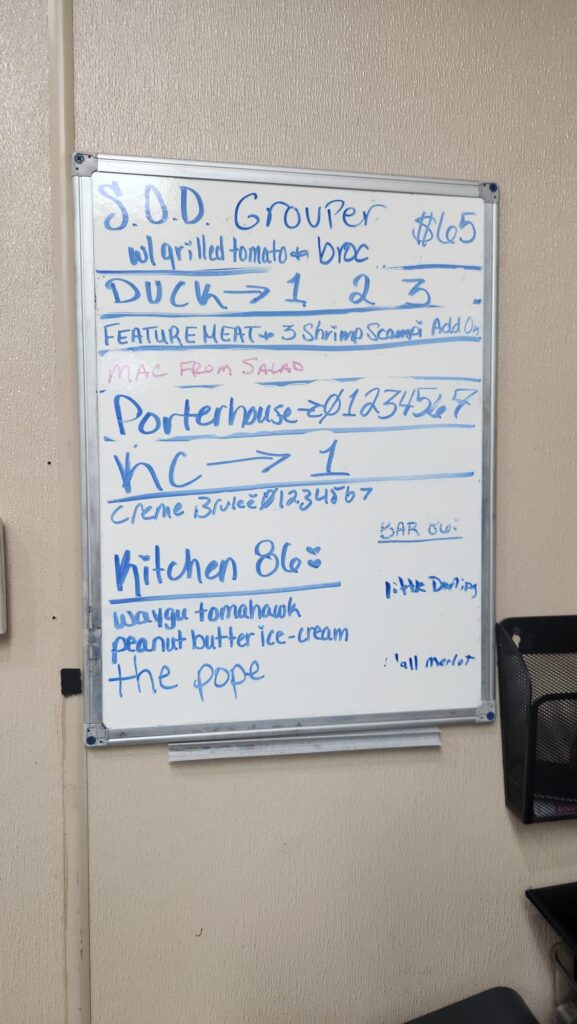 S.O.D. Grouper $65
w/ grilled tomato + broc
DUCK → 1 2 3
FEATURE MEAT → 3 Shrimp Scampi Add On
MAC FROM SALAD
Porterhouse → 01234567
KC → 1
Creme Brulee 01234567
BAR 86:
Kitchen 86:
little Darling
waygu tomahawk
peanut butter ice-cream
all merlot
the pope